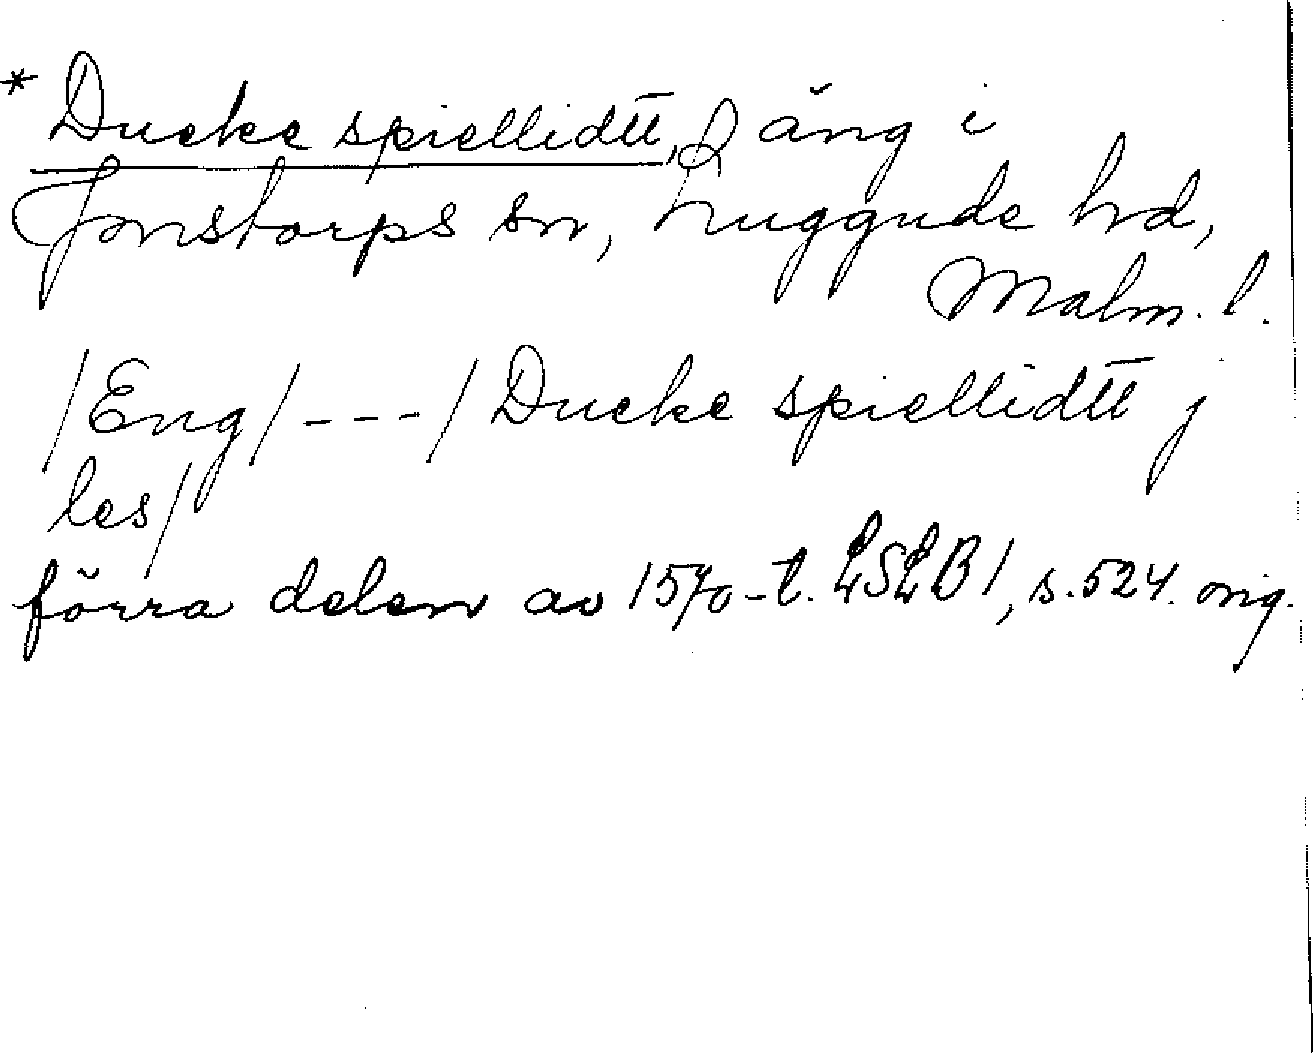 * Ducke spiellidtt, äng i
Jonstorps sn, Luggude hd,
Malm. l.
/Eng/ - - - / Ducke spiellidtt j
les/
förra delen av 1570-t. LSLB 1, s. 524. orig.